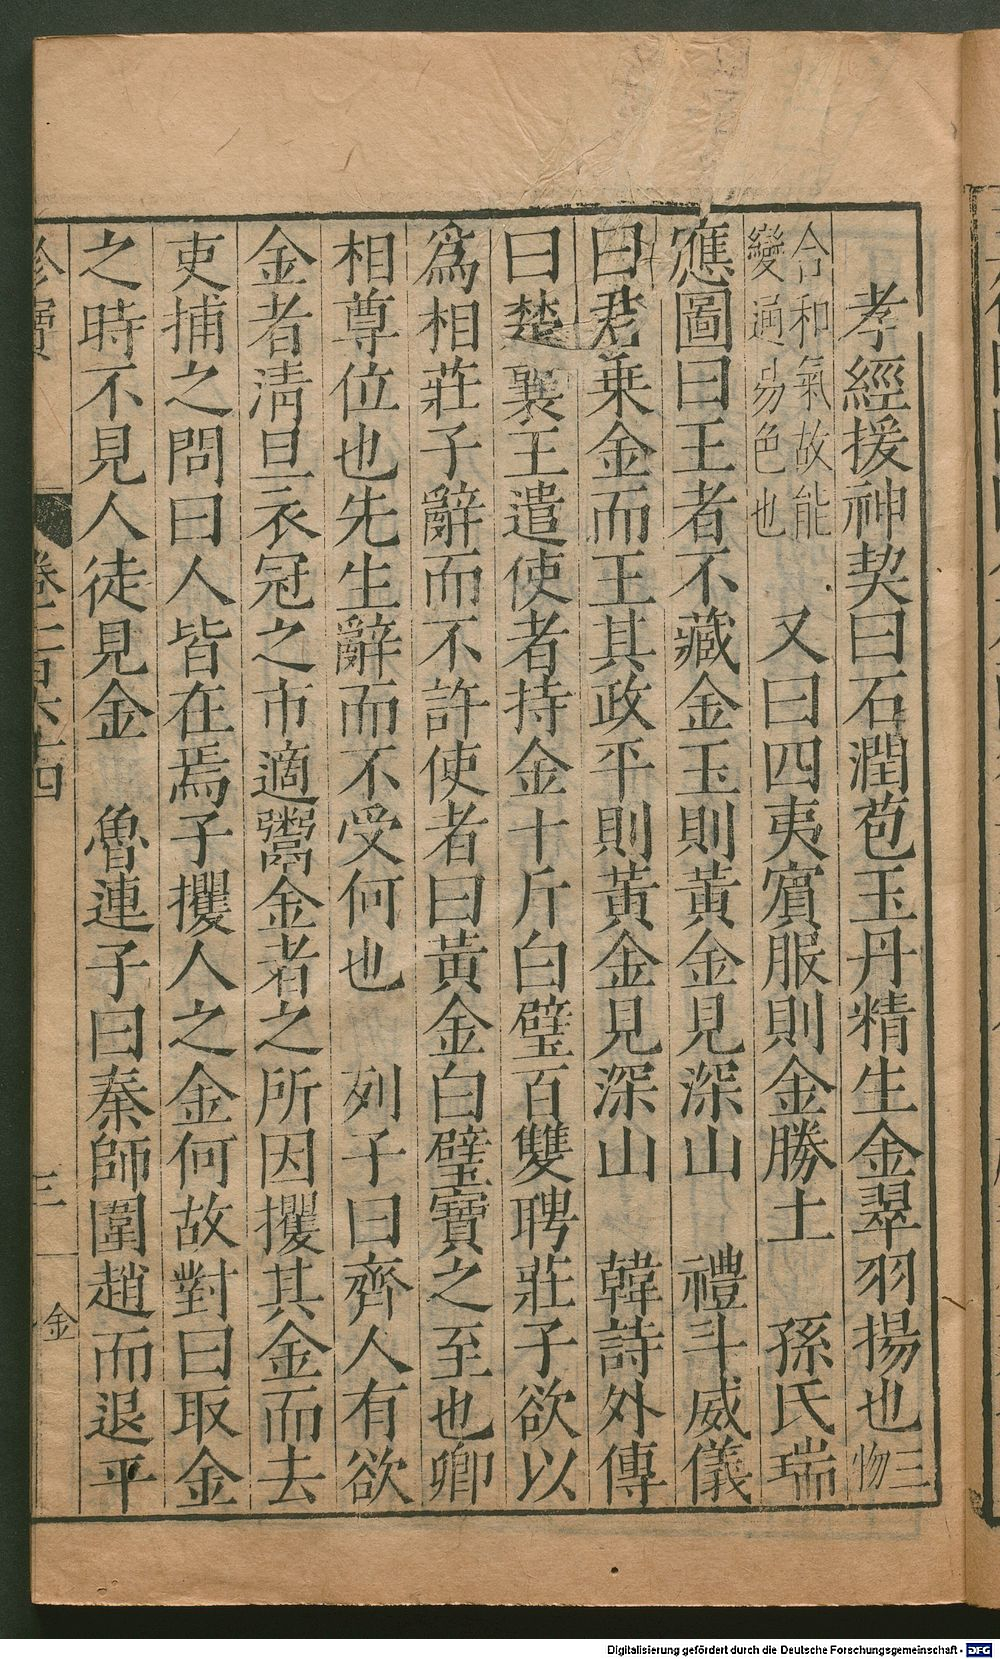 孝經援神契曰石潤苞玉丹精生金翠羽揚也三物
合和氣故能變通易色也 又曰四夷賓服則金勝土 孫氏瑞
應圖曰王者不藏金玉則黃金見深山 禮斗威儀
曰君乗金而王其政平則黃金見深山 韓詩外傳
曰楚襄王遣使者持金十斤白璧百雙聘莊子欲以
爲相莊子辭而不許使者曰黃金白璧寶之至也卿
相尊位也先生辭而不受何也 列子曰齊人有欲
金者清旦衣冠之市適鬻金者之所因攫其金而去
吏捕之問曰人皆在焉子攫人之金何故對曰取金
之時不見人徒見金 魯連子曰秦師圍趙而退平
珍寶 卷二百六十四 三 金
Digitalisierung gefördert durch die Deutsche Forschungsgemeinschaft - DFG